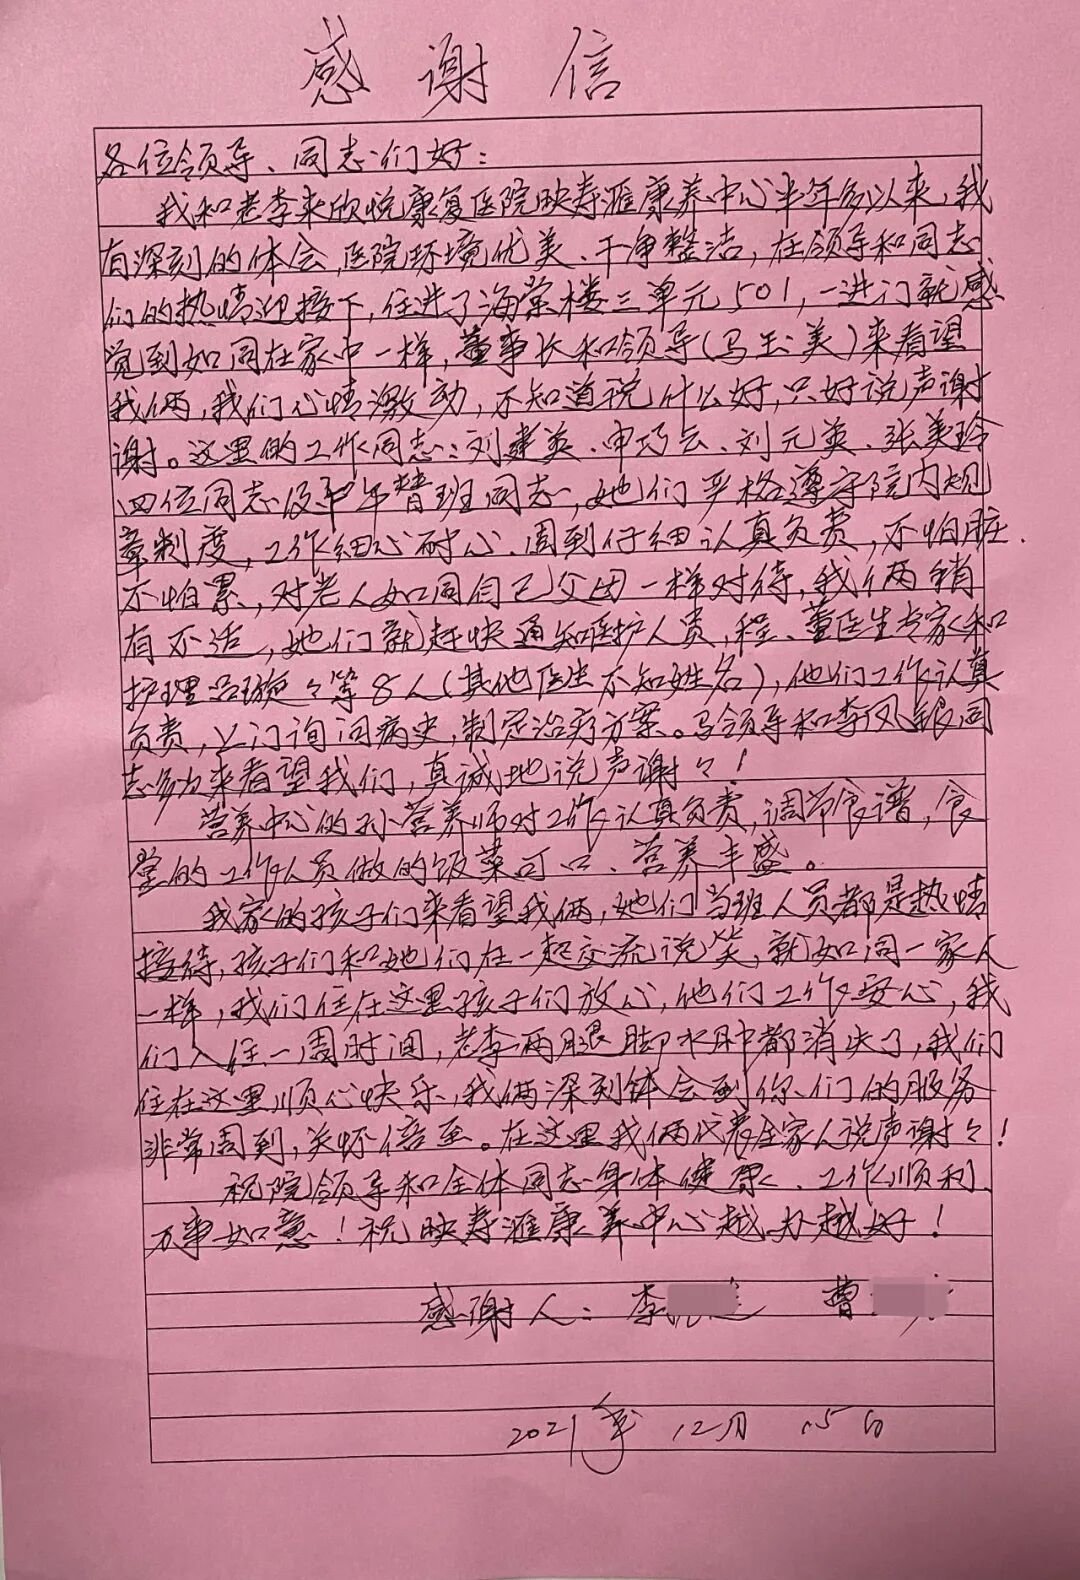 感谢信
各位领导、同志们好：
我和老李来欣悦康复医院映寿滙康养中心半年多以来，我
有深刻的体会，医院环境优美、干净整洁，在领导和同志
们的热情迎接下，住进了海棠楼三单元501，一进门就感
觉到如同在家中一样，董事长和领导（马玉美）来看望
我俩，我们心情激动，不知道说什么好，只好说声谢
谢。这里的工作同志：刘建英、申巧云、刘元英、张美玲
四位同志及中午替班同志，她们严格遵守院内规
章制度，工作细心耐心、周到仔细认真负责，不怕脏、
不怕累，对老人如同自己父母一样对待，我俩稍
有不适，她们就赶快通知医护人员，程、董医生专家和
护理吕璇々等8人（其他医生不知姓名），他们工作认真
负责，上门询问病史，制定治疗方案。马领导和李凤银同
志多次来看望我们，真诚地说声谢々！
营养中心的孙营养师对工作认真负责，调节食谱，食
堂的工作人员做的饭菜可口、营养丰盛。
我家的孩子们来看望我俩，她们当班人员都是热情
接待，孩子们和她们在一起交流说笑，就如同一家人
一样，我们住在这里孩子们放心，他们工作安心，我
们入住一周时间，老李两腿脚水肿都消失了，我们
住在这里顺心快乐，我俩深刻体会到你们的服务
非常周到，关怀倍至。在这里我俩代表全家人说声谢々！
祝院领导和全体同志身体健康、工作顺利、
万事如意！祝映寿滙康养中心越办越好！
感谢人：李 曹
2021年12月15日